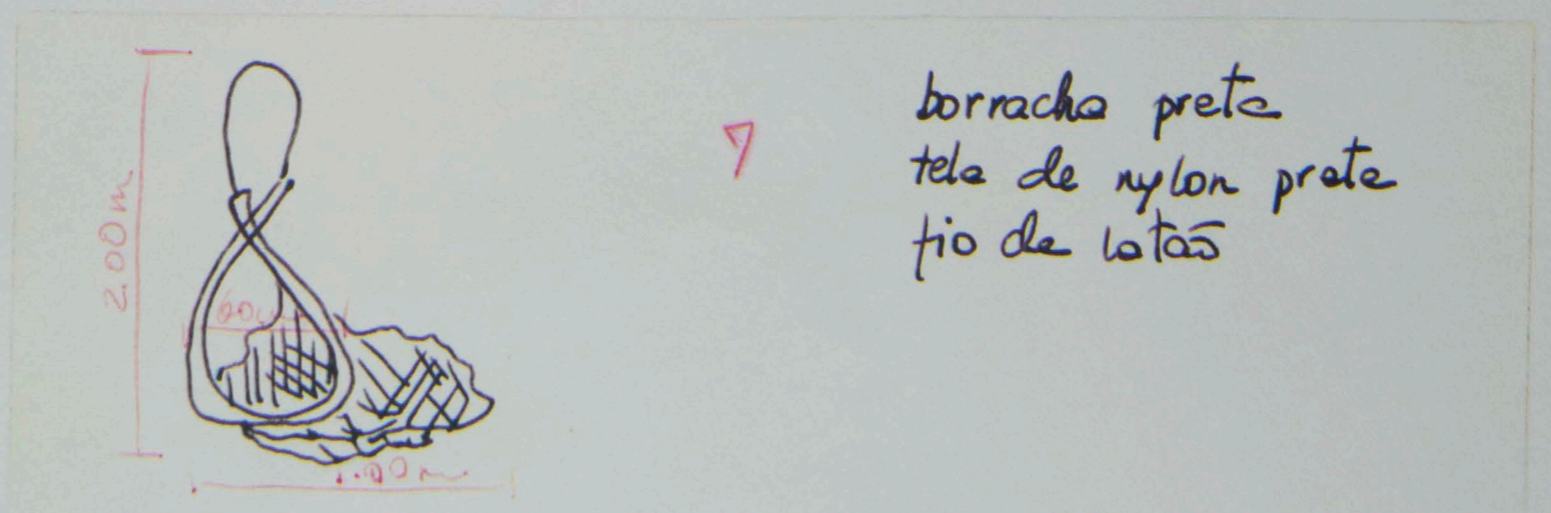 2.00m
60c
1.00m
7
borracha preta
tela de nylon preta
fio de latão